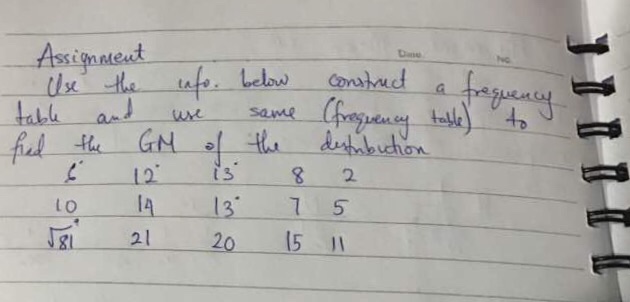 Assignment
Date No.
Use the info. below construct a frequency
table and use same (frequency table) to
find the GM of the distribution
6 12 13 8 2
10 14 13 7 5
√81 21 20 15 11